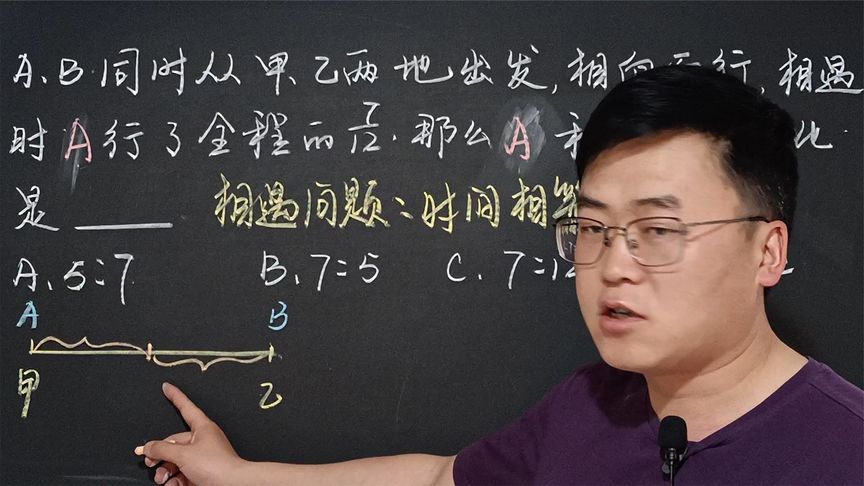 A、B同时从甲、乙两地出发,相向而行,相遇
时A行了全程的7/12.那么A 比
是____ 相遇问题:时间相等
A、5:7 B、7:5 C、7:12
A B
甲 乙